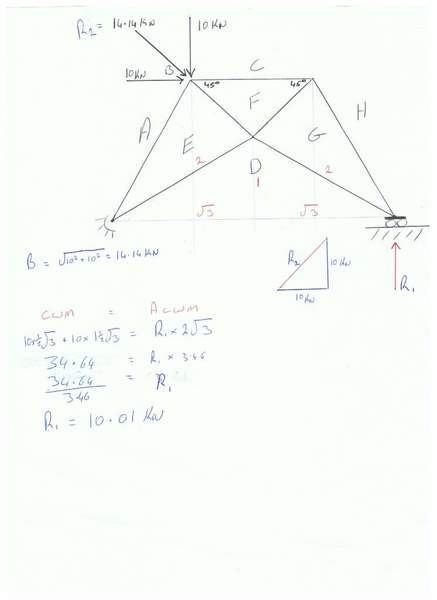 R2 = 14.14 KN
10 KN
10KN
B
45°
C
45°
A
F
H
E
G
2
D
2
1
√3
√3
B = √10² + 10² = 14.14 KN
R2
10 KN
10KN
R1
CWM = ACWM
10x½√3 + 10 x 1½√3 = R1 x 2√3
34.64 = R1 x 3.46
34.64 = R1
3.46
R1 = 10.01 KN